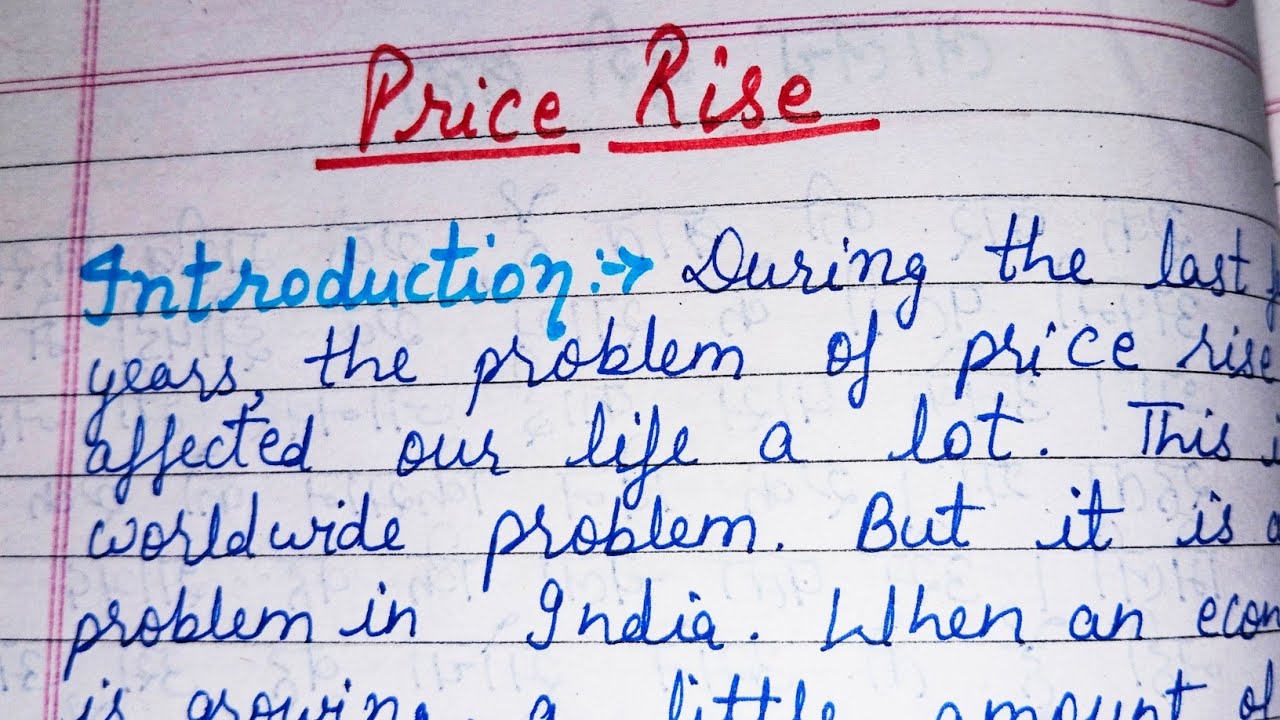 Price Rise
Introduction:→ During the last
years, the problem of price rise
affected our life a lot. This
worldwide problem. But it is
problem in India. When an
is growing, a little amount of